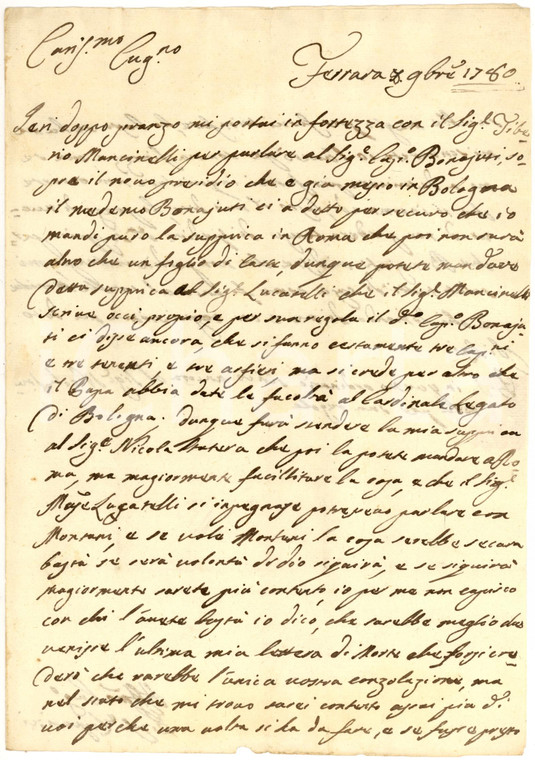 Caris.mo Cug.no
Ferrara 8 9bre 1780
Ieri doppo pranzo mi portai in fortezza con il Sig.r Tibe-
rio Mancinelli per parlare al Sig.e Cap.o Bonajuti, so-
pra il novo presidio che e gia messo in Bologna
il medemo Bonajuti ci a detto per securo che io
mandi puro la supplica in Roma che poi non sarà
altro che un figlio di case, dunque potete mandare
detta supplica al Sig.r Lucatelli che il Sig.r Mancinelli
scrive occi propio, e per sua regola il d.o Cap.o Bonaju-
ti ci disse ancora, che si fanno certamente tre Cap.ni
e tre tenenti, e tre alfieri ma si crede per altro che
il Papa abbia dete le facoltà al Cardinale Legato
di Bologna; dunque farà stendere la mia supplica
al Sig.e Nicola che poi la potete mandare a Ro-
ma, ma magiormente facilitare la cosa, e che il Sig.r
Lugatelli si inpegnasse potressivo parlare con
Montani, e se vole Montani la cosa serebbe secura
basta se serà volontà di dio siguirà, e se siguirà
magiormente sarete più contento, io per me non capisco
con chi l'avete basta io dico, che sarebbe meglio che
venisse l'ultima mia lettera di Morte che
derò che sarebbe l'unica vostra conzolazione, ma
nel stato che mi trovo sarei contento assai più di
voi perche una volta si ha da fare, e se fusse presto